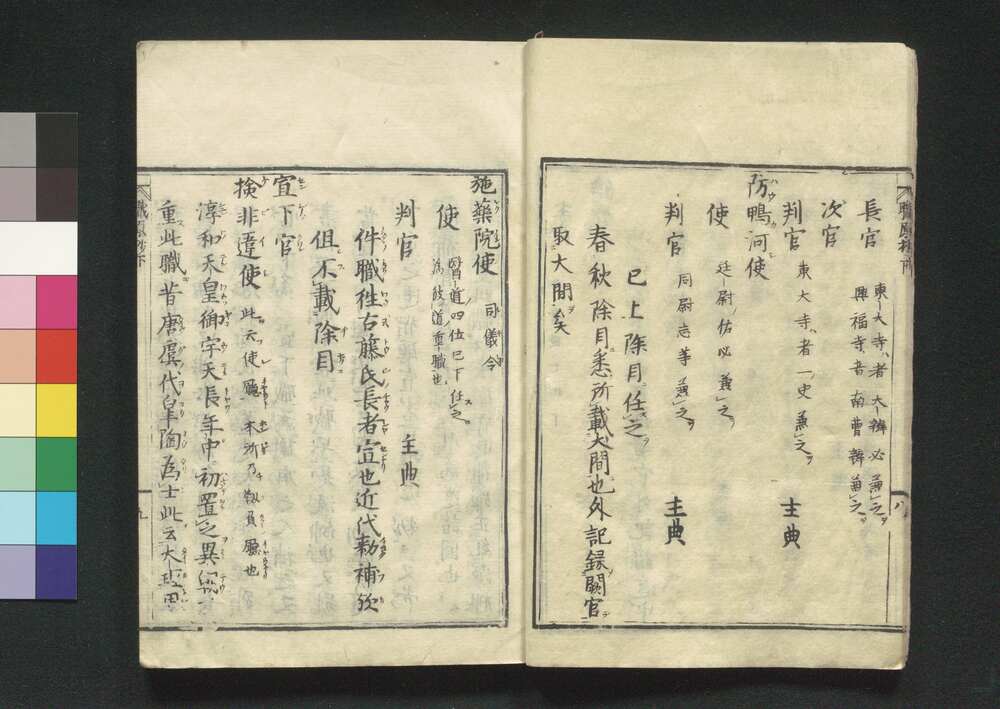 長官
東大寺者大辨必兼之
興福寺者南曹辨兼之
次官
判官
東大寺者一史兼之
主典
防鴨河使
使
廷尉佐必兼之
判官
同尉志等兼之
主典
已上除目任之
春秋除目悉所載大間也外記録闕官
取大間矣
職原抄下
八
施藥院使
司儀令
使
醫道四位已下任之
為彼道重職也
判官
主典
件職往古藤氏長者宣也近代勅補欤
但不載除目
宣下官
檢非違使
此云使廳
本所乃
負廳也
淳和天皇御宇天長年中初置之異
重此職昔唐虞代皐陶為士此云大理
職原抄下
九